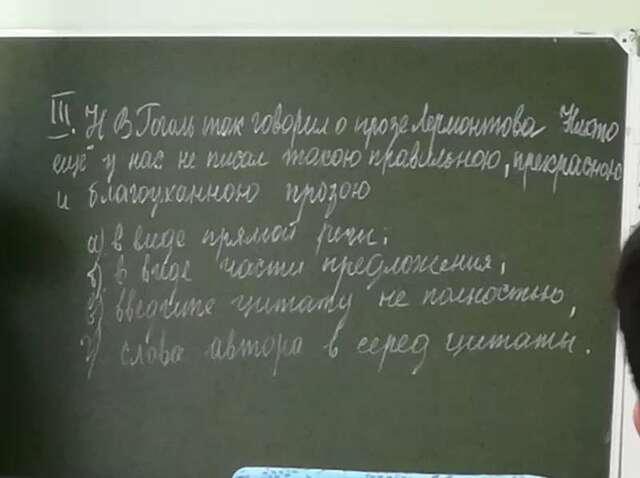 III. Н В Гоголь так говорил о прозе Лермонтова Никто
ещё у нас не писал такою правильною, прекрасною
и благоуханною прозою
а) в виде прямой речи;
б) в виде части предложения;
в) введите цитату не полностью,
г) слова автора в серед цитаты.